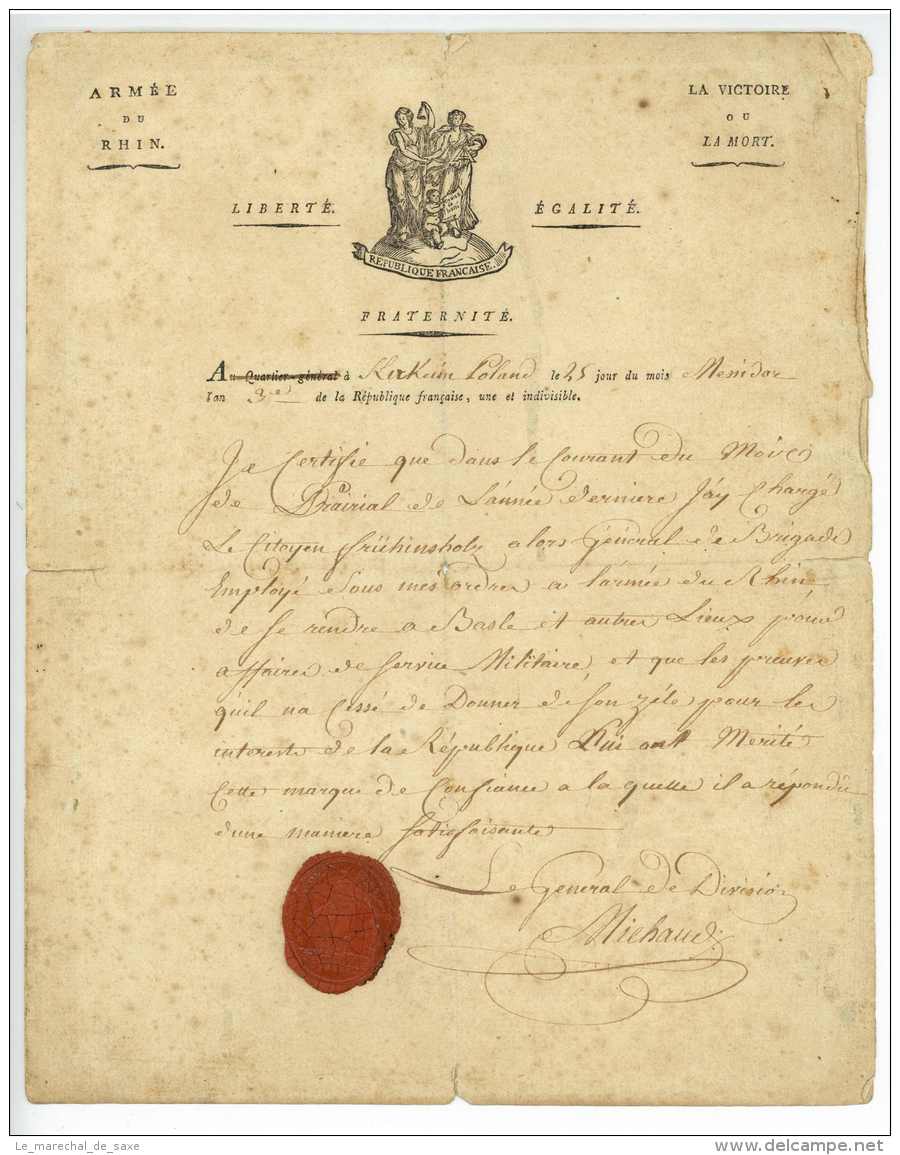 ARMÉE
DU
RHIN.
LA VICTOIRE
OU
LA MORT.
LIBERTÉ.
ÉGALITÉ.
REPUBLIQUE FRANCAISE.
FRATERNITÉ.
Au Quartier-général à Poland le 25 jour du mois Messidor
l'an 3.me de la République française, une et indivisible.
Je Certifie que dans le Courant du Mois
de Prairial de L'année derniere J'ay Chargé
Le Citoyen frühinsholz alors Général de Brigade
Employé Sous mes ordres a l'armée du Rhin
de se rendre a Basle et autres Lieux pour
affaires de service Militaire, et que les preuves
qu'il na Cessé de Donner de son zéle pour les
interets de la République Lui ont Merité
Cette marque de Confiance a la quelle il a répondu
d'une maniere satisfaisante
Le Général de Division
Michaud
Le_marechal_de_saxe
www.delcampe.net